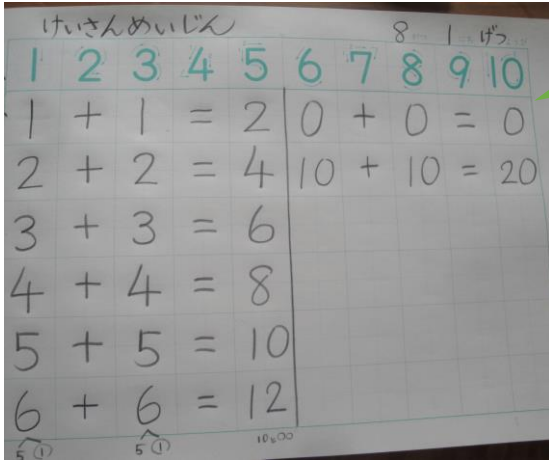 けいさんめいじん 8 1 げつ
1 2 3 4 5 6 7 8 9 10
1 + 1 = 2
2 + 2 = 4
3 + 3 = 6
4 + 4 = 8
5 + 5 = 10
6 + 6 = 12
5 ① 5 ①
0 + 0 = 0
10 + 10 = 20